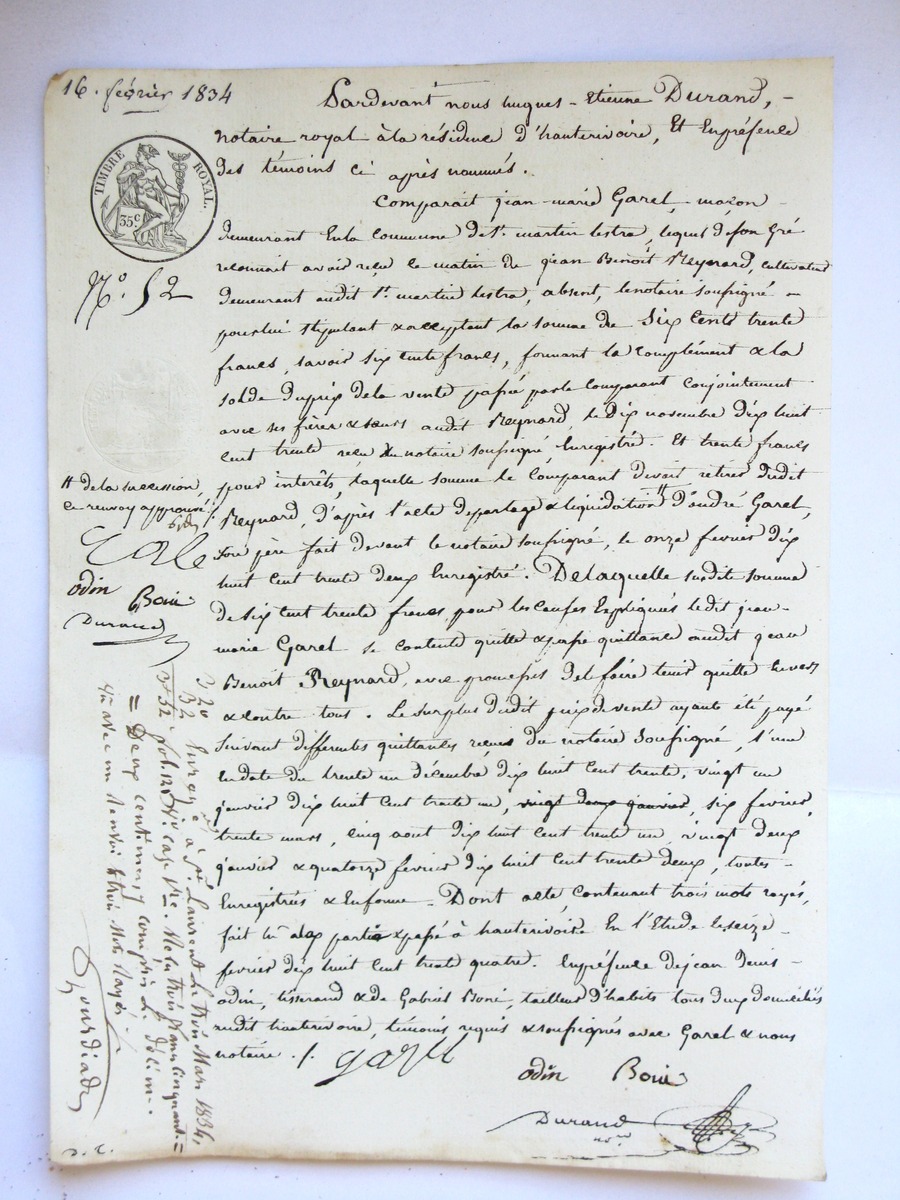 16. février 1834
Pardevant nous hugues-Etienne Durand,
notaire royal à la résidence d'hauterivoire, Et Enprésence
des témoins ci après nommés.
TIMBRE ROYAL.
35c
N° 52
Comparait jean-marie Garel, maçon
demeurant Enla Commune de St. martin lestra, lequel deson gré
reconnait avoir reçu ce matin de jean Benoit Reynard, cultivateur
demeurant audit St. martin lestra, absent, le notaire soussigné
pour lui stipulant & acceptant la somme de Six Cents trente
francs, savoir six cents francs, formant le complément & la
solde du prix de la vente passée par le Comparant Conjointement
avec ses frères & sœurs audit Reynard, le Dix novembre dix huit
cent trente reçu du notaire soussigné, Enregistré. Et trente francs
pour intérêts, laquelle somme le Comparant devait retirer dudit
Reynard, d'après l'acte departage & liquidation # d'andré Garel,
son père fait devant le notaire soussigné, le onze fevrier dix
huit cent trente deux Enregistré. Delaquelle susdite somme
de six cent trente francs pour les causes Expliquées ledit jean-
marie Garel se contente quitte & passe quittance audit jean
Benoit Reynard, avec promesses del faire tenir quitte Envers
& contre tous. Le Surplus dudit prix de vente ayant été payé
Suivant differentes quittances reçues du notaire Soussigné, l'une
En date du trente un décembre dix huit cent trente, vingt un
janvier dix huit cent trente un, vingt deux janvier, six fevrier,
trente mars, cinq aout dix huit cent trente un, vingt deux
janvier & quatorze fevrier dix huit cent trente deux, toutes
Enregistrées & Enforme. Dont acte, contenant trois mots rayés,
fait lu aux parties & passé à hauterivoire En l'Etude le seize
fevrier dix huit cent trente quatre. Enprésence dejean Denis
odin, tisserand & de Gabriel Boné, tailleur d'habits tous deux domiciliés
audit hauterivoire, témoins requis & soussignés avec Garel & nous
notaire ./.
garel
odin Boné
Durand
nore
# de la succession,
ce renvoy approuvé.
odin Boné
Durand
Enreg. à St. Laurent le trois Mars 1834,
fol. 128 case
= Deux centimes, compris le décime.
avec un renvoi & trois Mots Rayés.